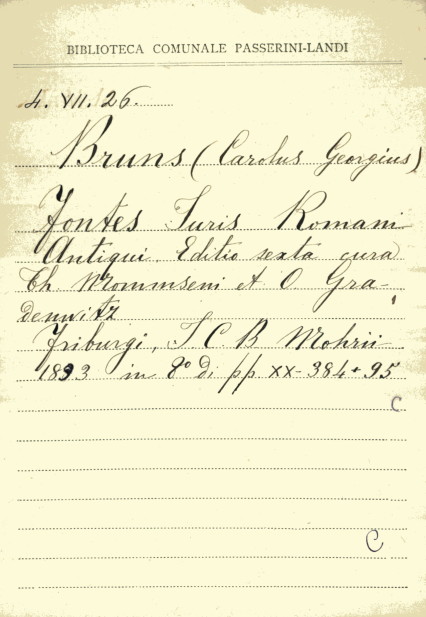 BIBLIOTECA COMUNALE PASSERINI-LANDI
4. VII. 26.
Bruns (Carolus Georgius)
Fontes Iuris Romani
Antiqui. Editio sexta cura
Th. Mommseni et O Gra-
denwitz
Friburgi, I C B Mohrii
1893 in 8° di pp XX-384+95
C
C